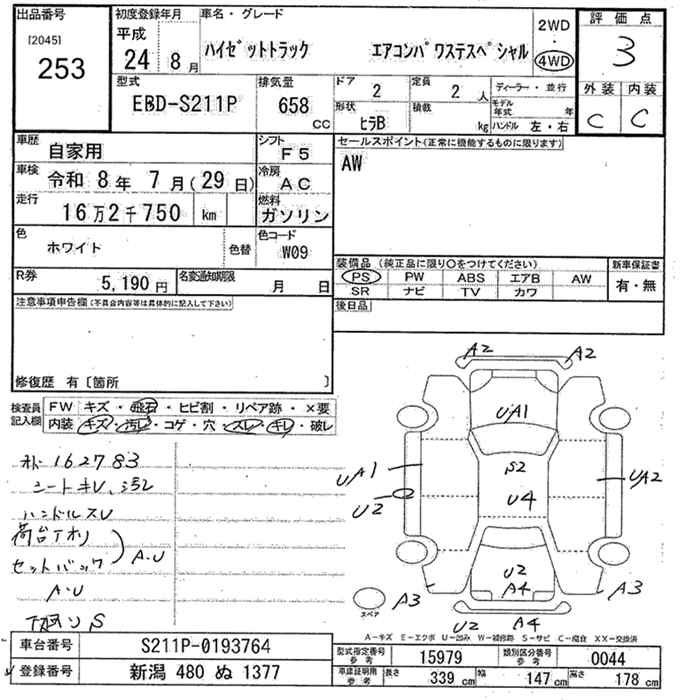 出品番号 初度登録年月 車名・グレード 2WD 評価点
[2045] 平成 ・ 3
253 24年 8月 ハイゼットトラック エアコンパワステスペシャル 4WD
型式 排気量 ドア 2 定員 2人 ディーラー・並行 外装 内装
EBD-S211P 658 CC 形状 ヒラB 積載 kg モデル年式 年 C C
ハンドル 左・右
車歴 自家用 シフト F5 セールスポイント(正常に機能するものに限ります)
車検 令和 8年 7月(29日) 冷房 AC AW
走行 16万2千750 km 燃料 ガソリン
色 ホワイト 色替 色コード W09
装備品(純正品に限り○をつけてください) 新車保証書
R券 5,190円 名変通知期限 月 日 PS PW ABS エアB AW 有・無
SR ナビ TV カワ
注意事項申告欄(不具合内容等は具体的に記入して下さい) 後日品
修復歴 有〔箇所 〕
検査員記入欄 FW キズ・飛石・ヒビ割・リペア跡・×要
内装 キズ・汚レ・コゲ・穴・スレ・キレ・破レ
A2 A2
UA1
S2
UA1 U4 UA2
U2
U2
A4
A3 A3
スペア
U2 A4
162783
シートキレ、汚レ
ハンドルスレ
荷台アオリ
セットバック A・U
A・U
下廻りS
A-キズ E-エクボ U-凹み W-補修跡 S-サビ C-腐食 XX-交換済
車台番号 S211P-0193764 型式指定番号 参考 15979 類別区分番号 参考 0044
登録番号 新潟 480 ぬ 1377 車庫証明用 参考 長さ 339 cm 幅 147 cm 高さ 178 cm